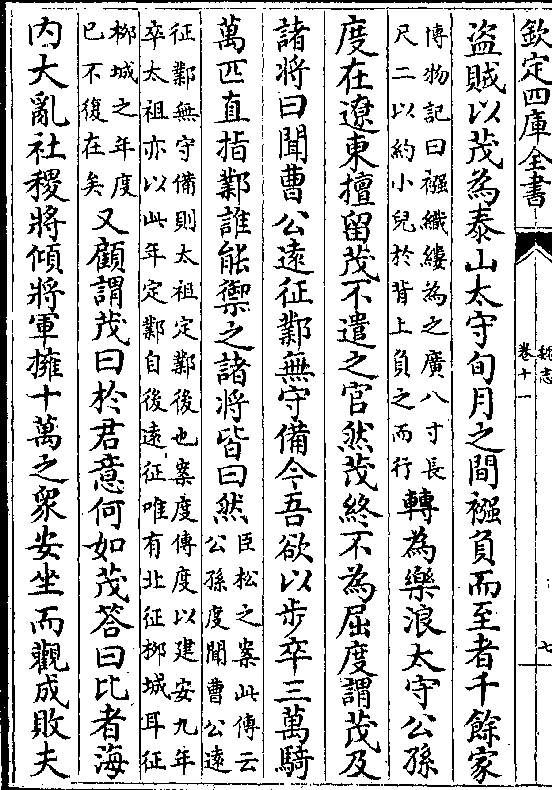 欽定四庫全書
魏志
卷十一
七
盜賊以茂為泰山太守旬月之間襁負而至者千餘家
博物記曰襁織縷為之廣八寸長
尺二以約小兒於背上負之而行
轉為樂浪太守公孫
度在遼東擅留茂不遣之官然茂終不為屈度謂茂及
諸將曰聞曹公遠征鄴無守備今吾欲以步卒三萬騎
萬匹直指鄴誰能禦之諸將皆曰然
臣松之案此傳云
公孫度聞曹公遠
征鄴無守備則太祖定鄴後也案度傳度以建安九年
卒太祖亦以此年定鄴自後遠征唯有北征柳城耳征
柳城之年度
已不復在矣
又顧謂茂曰於君意何如茂答曰比者海
內大亂社稷將傾將軍擁十萬之衆安坐而觀成敗夫